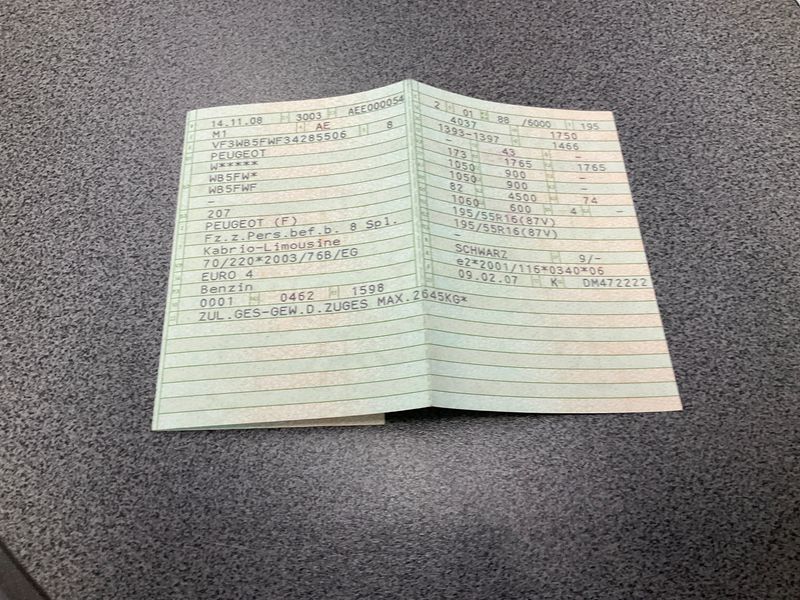 14.11.08 3003 AEE000054
M1 AE
VF3WB5FWF34285506 8
PEUGEOT
W*****
WB5FW*
WB5FWF
-
207
PEUGEOT (F)
Fz.z.Pers.bef.b. 8 Spl.
Kabrio-Limousine
70/220*2003/76B/EG
EURO 4
Benzin
0001 0462 1598
ZUL.GES-GEW.D.ZUGES MAX.2645KG*
2 01 88 /6000 195
4037 1750
1393-1397 1466
173 43 -
1050 1765 1765
1050 900 -
82 900 -
1060 4500 74
600 4 -
195/55R16(87V)
195/55R16(87V)
-
SCHWARZ 9/-
e2*2001/116*0340*06
09.02.07 K DM472222